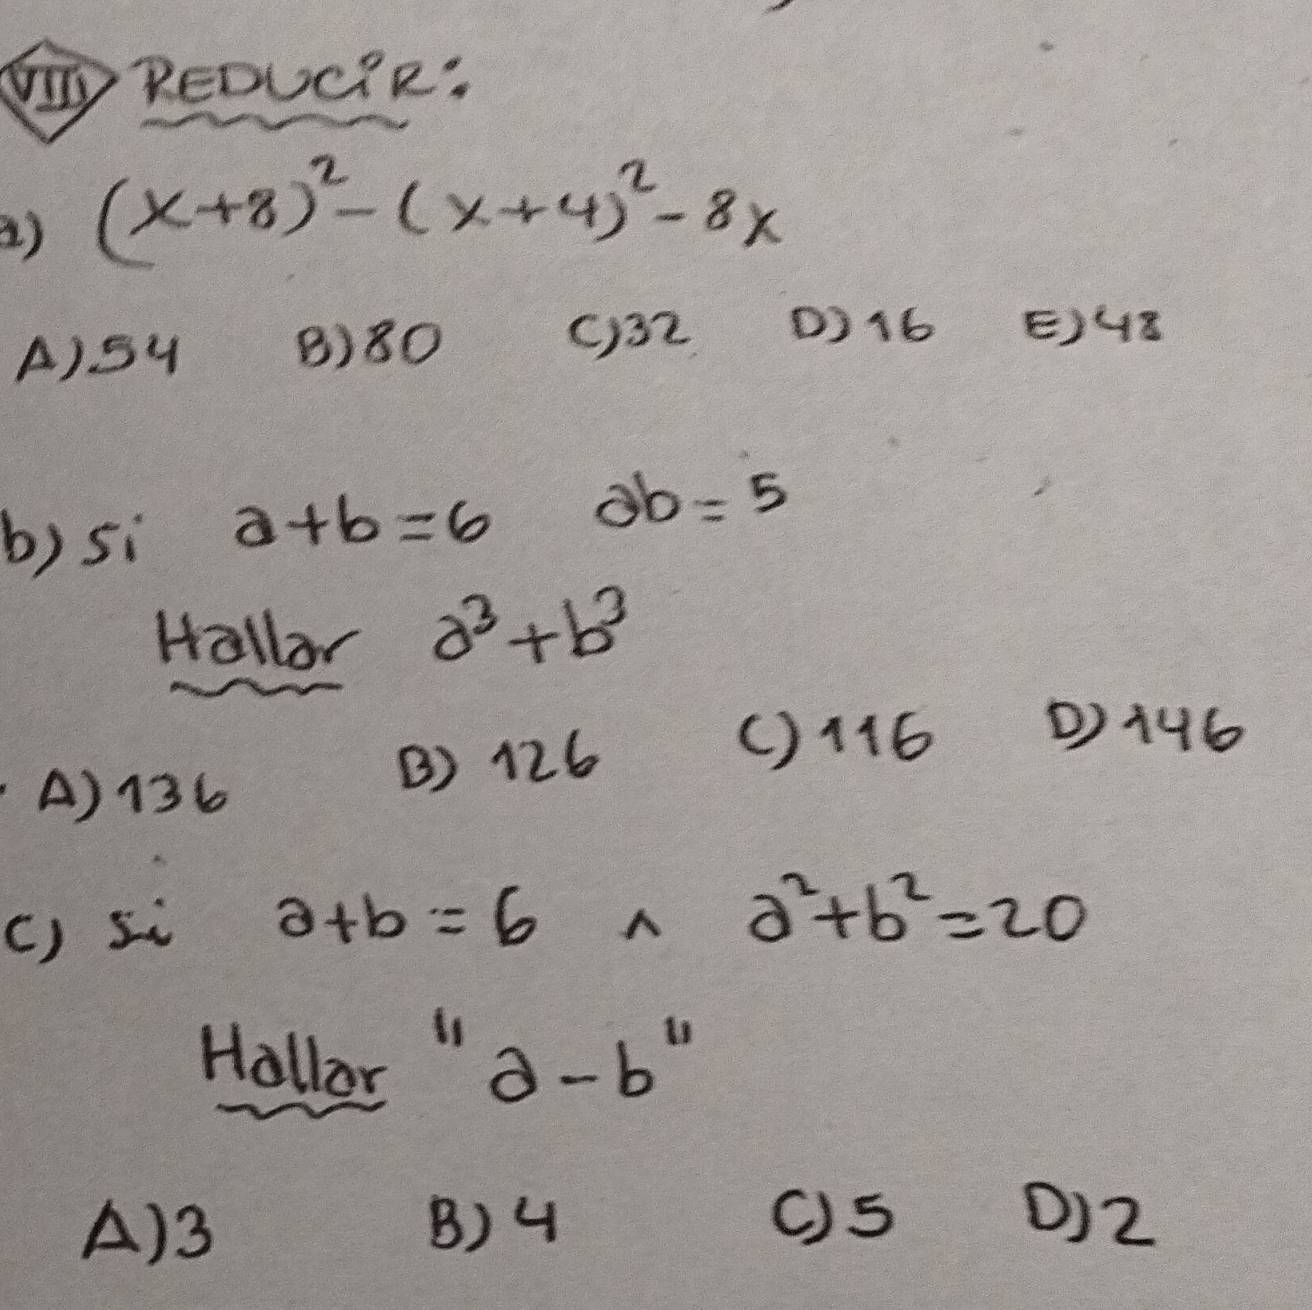 VIII REDUCIR:
a) (x+8)²-(x+4)²-8x
A) 54 B) 80 C) 32 D) 16 E) 48
b) si a+b=6 ab=5
Hallar a³+b³
A) 136 B) 126 C) 116 D) 146
c) si a+b=6 ∧ a²+b²=20
Hallar "a-b"
A) 3 B) 4 C) 5 D) 2